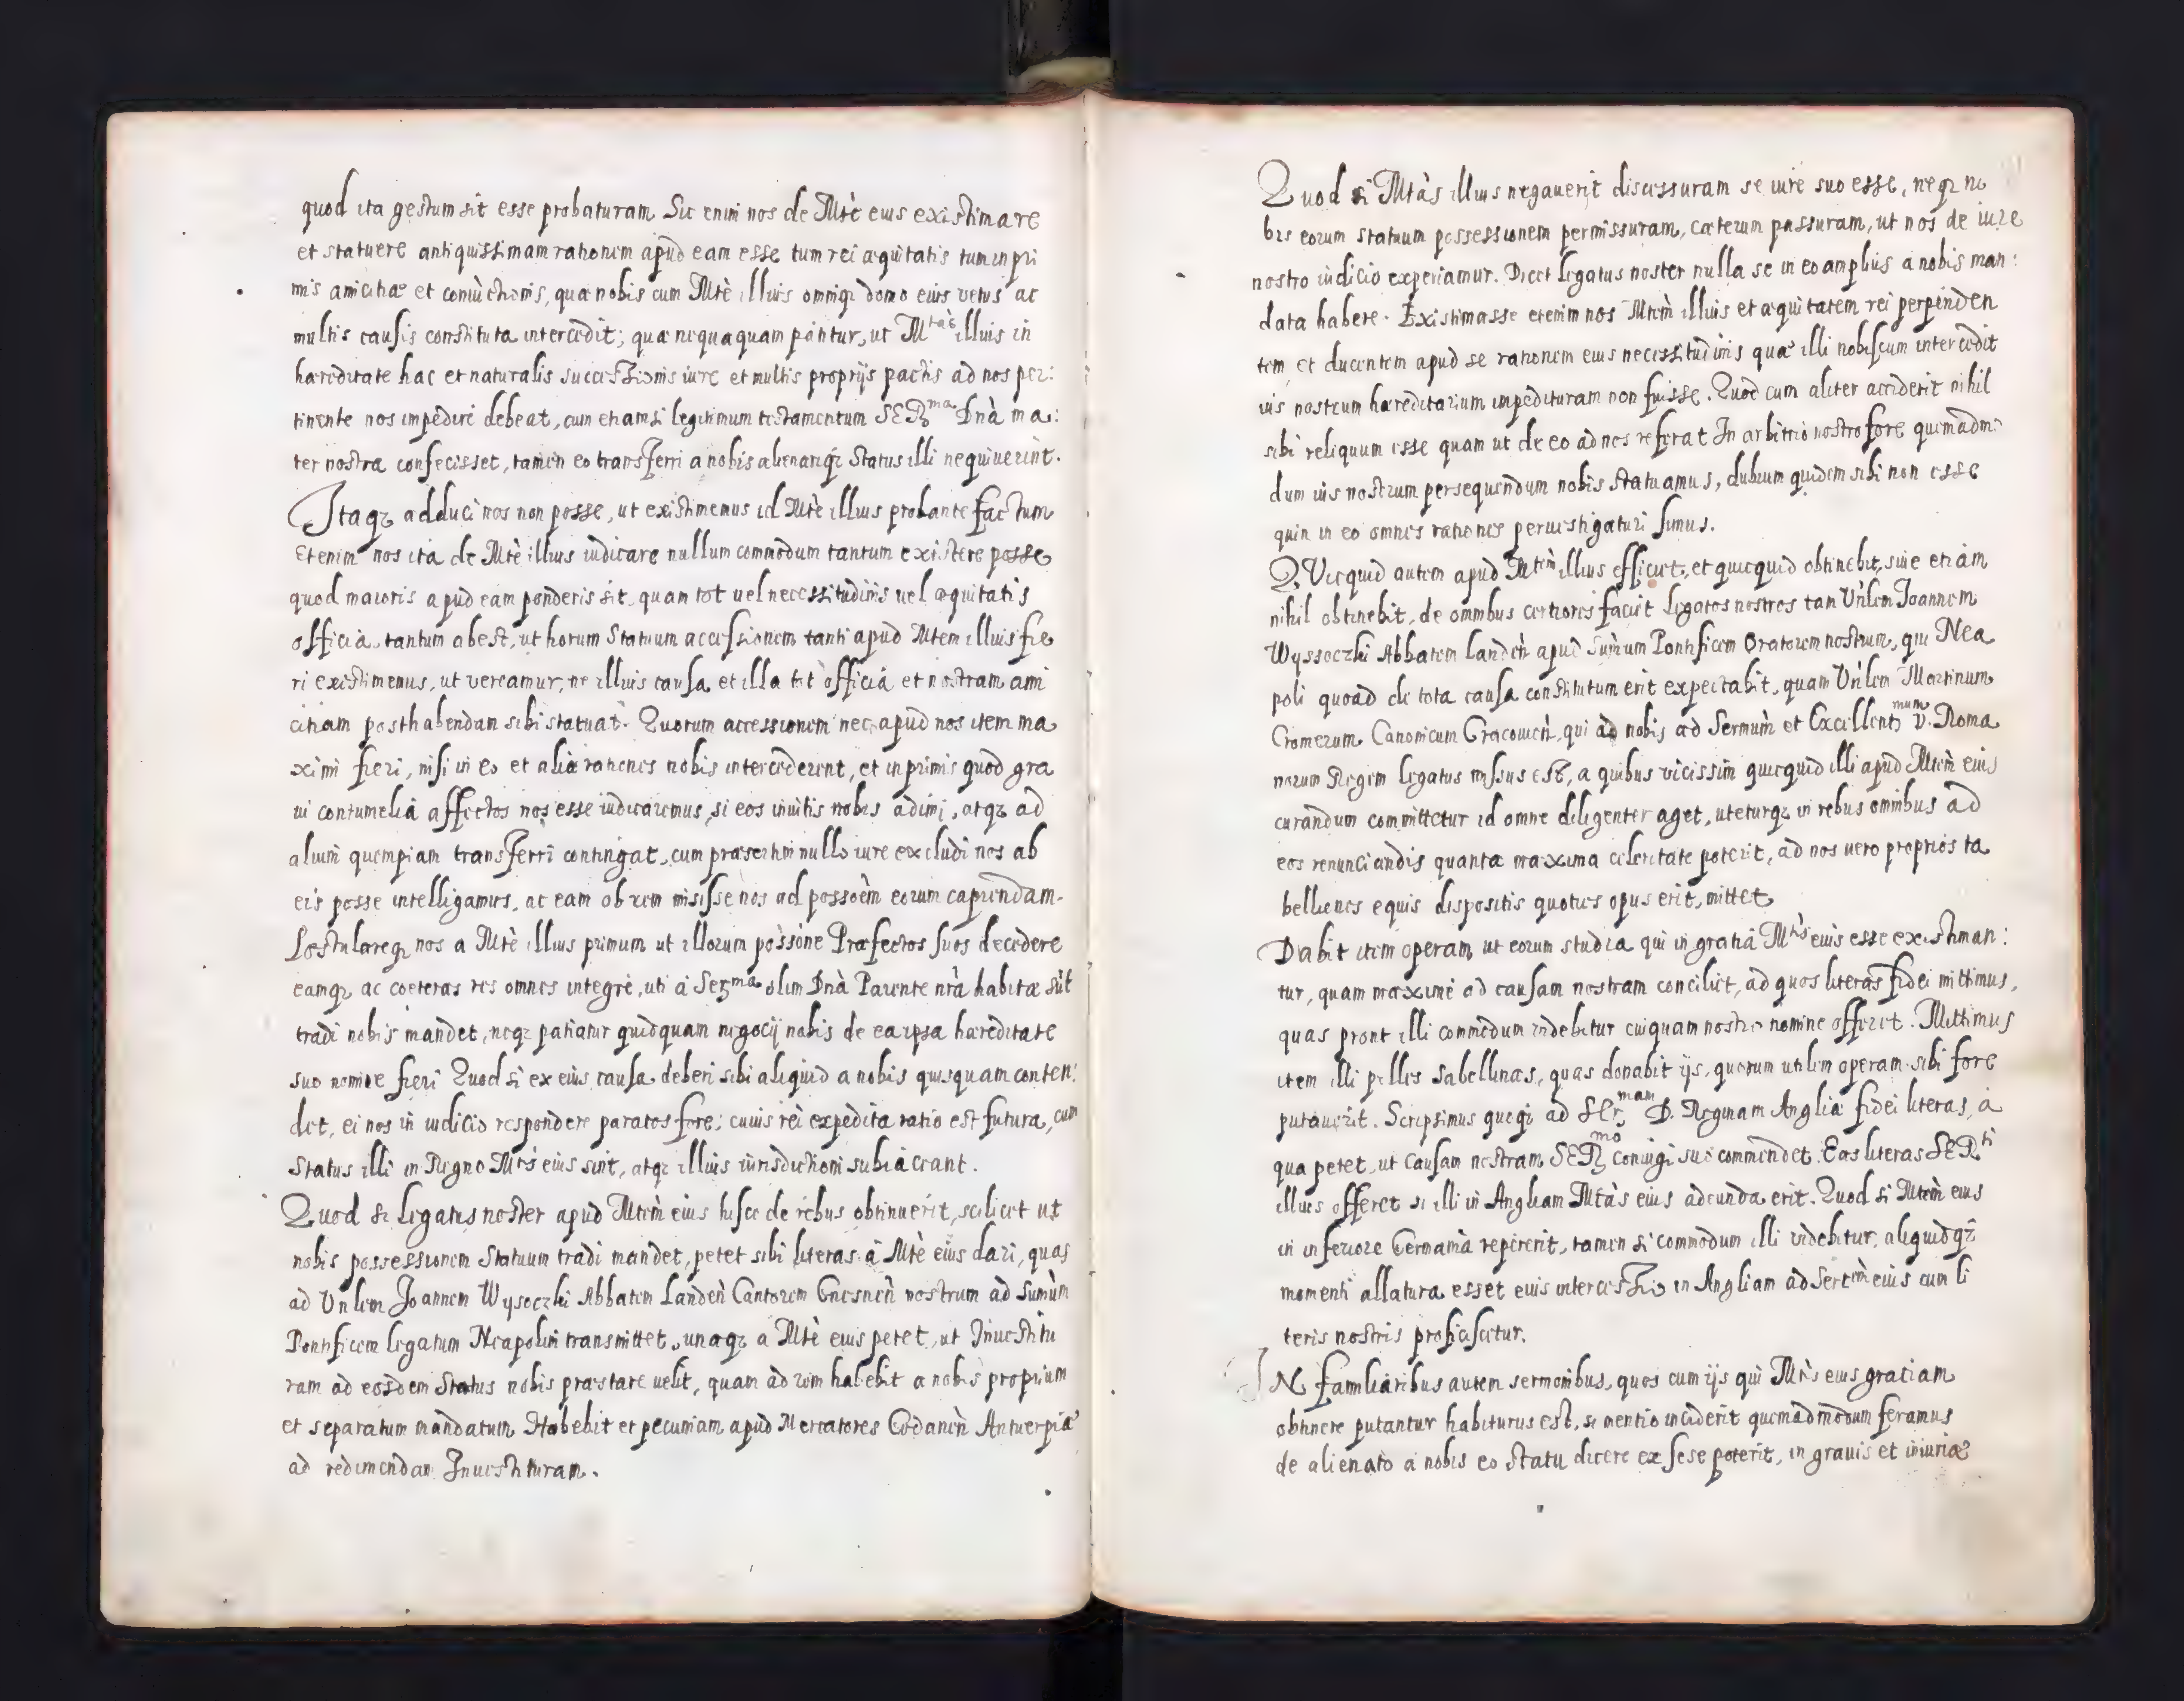 quod ita gestum sit esse probaturam Sic enim nos de Mtè eius existimare
et statuere antiquissimam rationem apud eam esse tum rei æquitatis tum in pri
mis amicitiæ et coniùctionis, quæ nobis cum Mtè illius omniqꝫ domo eius vetus ac
multis causis constituta intercedit; quæ nequaquam pàtitur, ut M^tas illius in
hæreditate hac et naturalis successionis iure et multis proprijs pactis ad nos per:
tinente nos impedire debeat, cum etiamsi legitimum testamentum SER^ma Dnà ma:
ter nostra confecisset, tamen eo transferri a nobis alienariqꝫ Status illi nequiuerint.
Itaqꝫ adduci nos non posse, ut existimemus id Mtè illius probante factum
Etenim nos ita de Mtè illius iudicare nullum commodum tantum existere posse
quod maioris apud eam ponderis sit, quam tot uel necessitudinis uel æquitatis
officia, tantum abest, ut horum Statuum accessionem tanti apud Mtem illius fie
ri existimemus, ut vereamur, ne illius causa et illa tot officia et nostram ami
citiam posthabendam sibi statuat. Quorum accessionem nec apud nos item ma
ximi fieri, nisi in eo et aliæ rationes nobis intercederent, et inprimis quod gra
ui contumelia affectos nos esse iudicaremus, si eos inuitis nobis adimi, atqꝫ ad
alium quempiam transferri contingat, cum præsertim nullo iure excludi nos ab
eis posse intelligamus, ac eam ob rem misisse nos ad possoèm eorum capiendam.
Postulareqꝫ nos a Mtè illius primum ut illorum possòne Præfectos suos decedere
eamqꝫ ac coeteras res omnes integrè, uti à Ser^ma olim Dnà Parente nrà habitæ sùt
tradi nobis mandet, neqꝫ patiatur quidquam negocij nobis de ea ipsa hæreditate
suo nomine fieri Quod si ex eius causa deberi sibi aliquid a nobis quisquam conten:
det, ei nos in iudicio respondere paratos fore; cuius rei expedita ratio est futura, cum
Status illi in Regno Mtis eius sint, atqꝫ illius iurisdictioni subiaceant.
Quod si legatus noster apud Mtem eius hisce de rebus obtinuerit, scilicet ut
nobis possessionem Statuum tradi mandet, petet sibi literas à Mtè eius dari, quas
ad Vnlem Joannem Wysoczki Abbatem Landeñ Cantorem Gnesneñ nostrum ad Sumùm
Pontificem legatum Neapolim transmittet, unaqꝫ a Mtè eius petet, ut Inuestitu
ram ad eosdem Status nobis præstare uelit, quam ad rem habebit a nobis proprium
et separatum mandatum. Habebit et pecuniam apud Mercatores Gedaneñ Antuerpiæ
ad redimendam Inuestituram.
Quod si Mtàs illius negauerit discessuram se iure suo esse, neqꝫ no
bis eorum statuum possessionem permissuram, cæterum passuram, ut nos de iure
nostro iudicio experiamur. Dicet legatus noster nulla se in eo amplius a nobis man:
data habere. Existimasse etenim nos Mtèm illius et æquitatem rei perpenden
tem et ducentem apud se rationem eius necessitudinis quæ illi nobiscum intercedit
ius nostrum hæreditarium impedituram non fuisse. Quod cum aliter acciderit nihil
sibi reliquum esse quam ut de eo ad nos referat In arbitrio nostro fore quemadmo
dum ius nostrum persequendum nobis statuamus, dubium quidem sibi non esse
quin in eo omnes rationes peruestigaturi simus.
QVicquid autem apud Mtem illius efficiet, et quicquid obtinebit, siue etiam
nihil obtinebit, de omnibus certiores faciet legatos nostros tam Vnlem Joannem
Wyssoczki Abbatem Landeñ apud Sumùm Pontificem Oratorem nostrum, qui Nea
poli quoad de tota causa constitutum erit expectabit, quam Vnlem Martinum
Cromerum Canonicum Cracouieñ, qui ad nobis ad Sermùm et Excellent^mum D. Roma
norum Regem legatus missus est, a quibus vicissim quicquid illi apud Mtèm eius
curandum committetur id omne diligenter aget, uteturqꝫ in rebus omnibus ad
eos renunciandis quanta maxima celeritate poterit, ad nos uero proprios ta
bellienes equis dispositis quoties opus erit, mittet.
Dabit item operam ut eorum studia qui in gratia M^tis eius esse existiman:
tur, quam maxime ad causam nostram conciliet, ad quos literas fidei mittimus,
quas prout illi commodum videbitur cuiquam nostro nomine offeret. Mittimus
item illi pelles Sabellinas, quas donabit ijs, quorum utilem operam sibi fore
putauerit. Scripsimus quoqꝫ ad SEr^mam D. Reginam Angliæ fidei literas, à
qua petet, ut causam nostram SER^mo coniugi suo commendet. Eas literas SER^ti
illius offeret si illi in Angliam Mtàs eius adeunda erit. Quod si Mtem eius
in inferiore Germania repererit, tamen si commodum illi videbitur, aliquidqꝫ
momenti allatura esset eius intercessio in Angliam ad Sertèm eius cum li
teris nostris proficiscatur.
IN familiaribus autem sermonibus, quos cum ijs qui Mtis eius gratiam
obtinere putantur habiturus est, si mentio inciderit quemadmodum feramus
de alienato a nobis eo statu dicere ex sese poterit, in grauis et iniuriæ